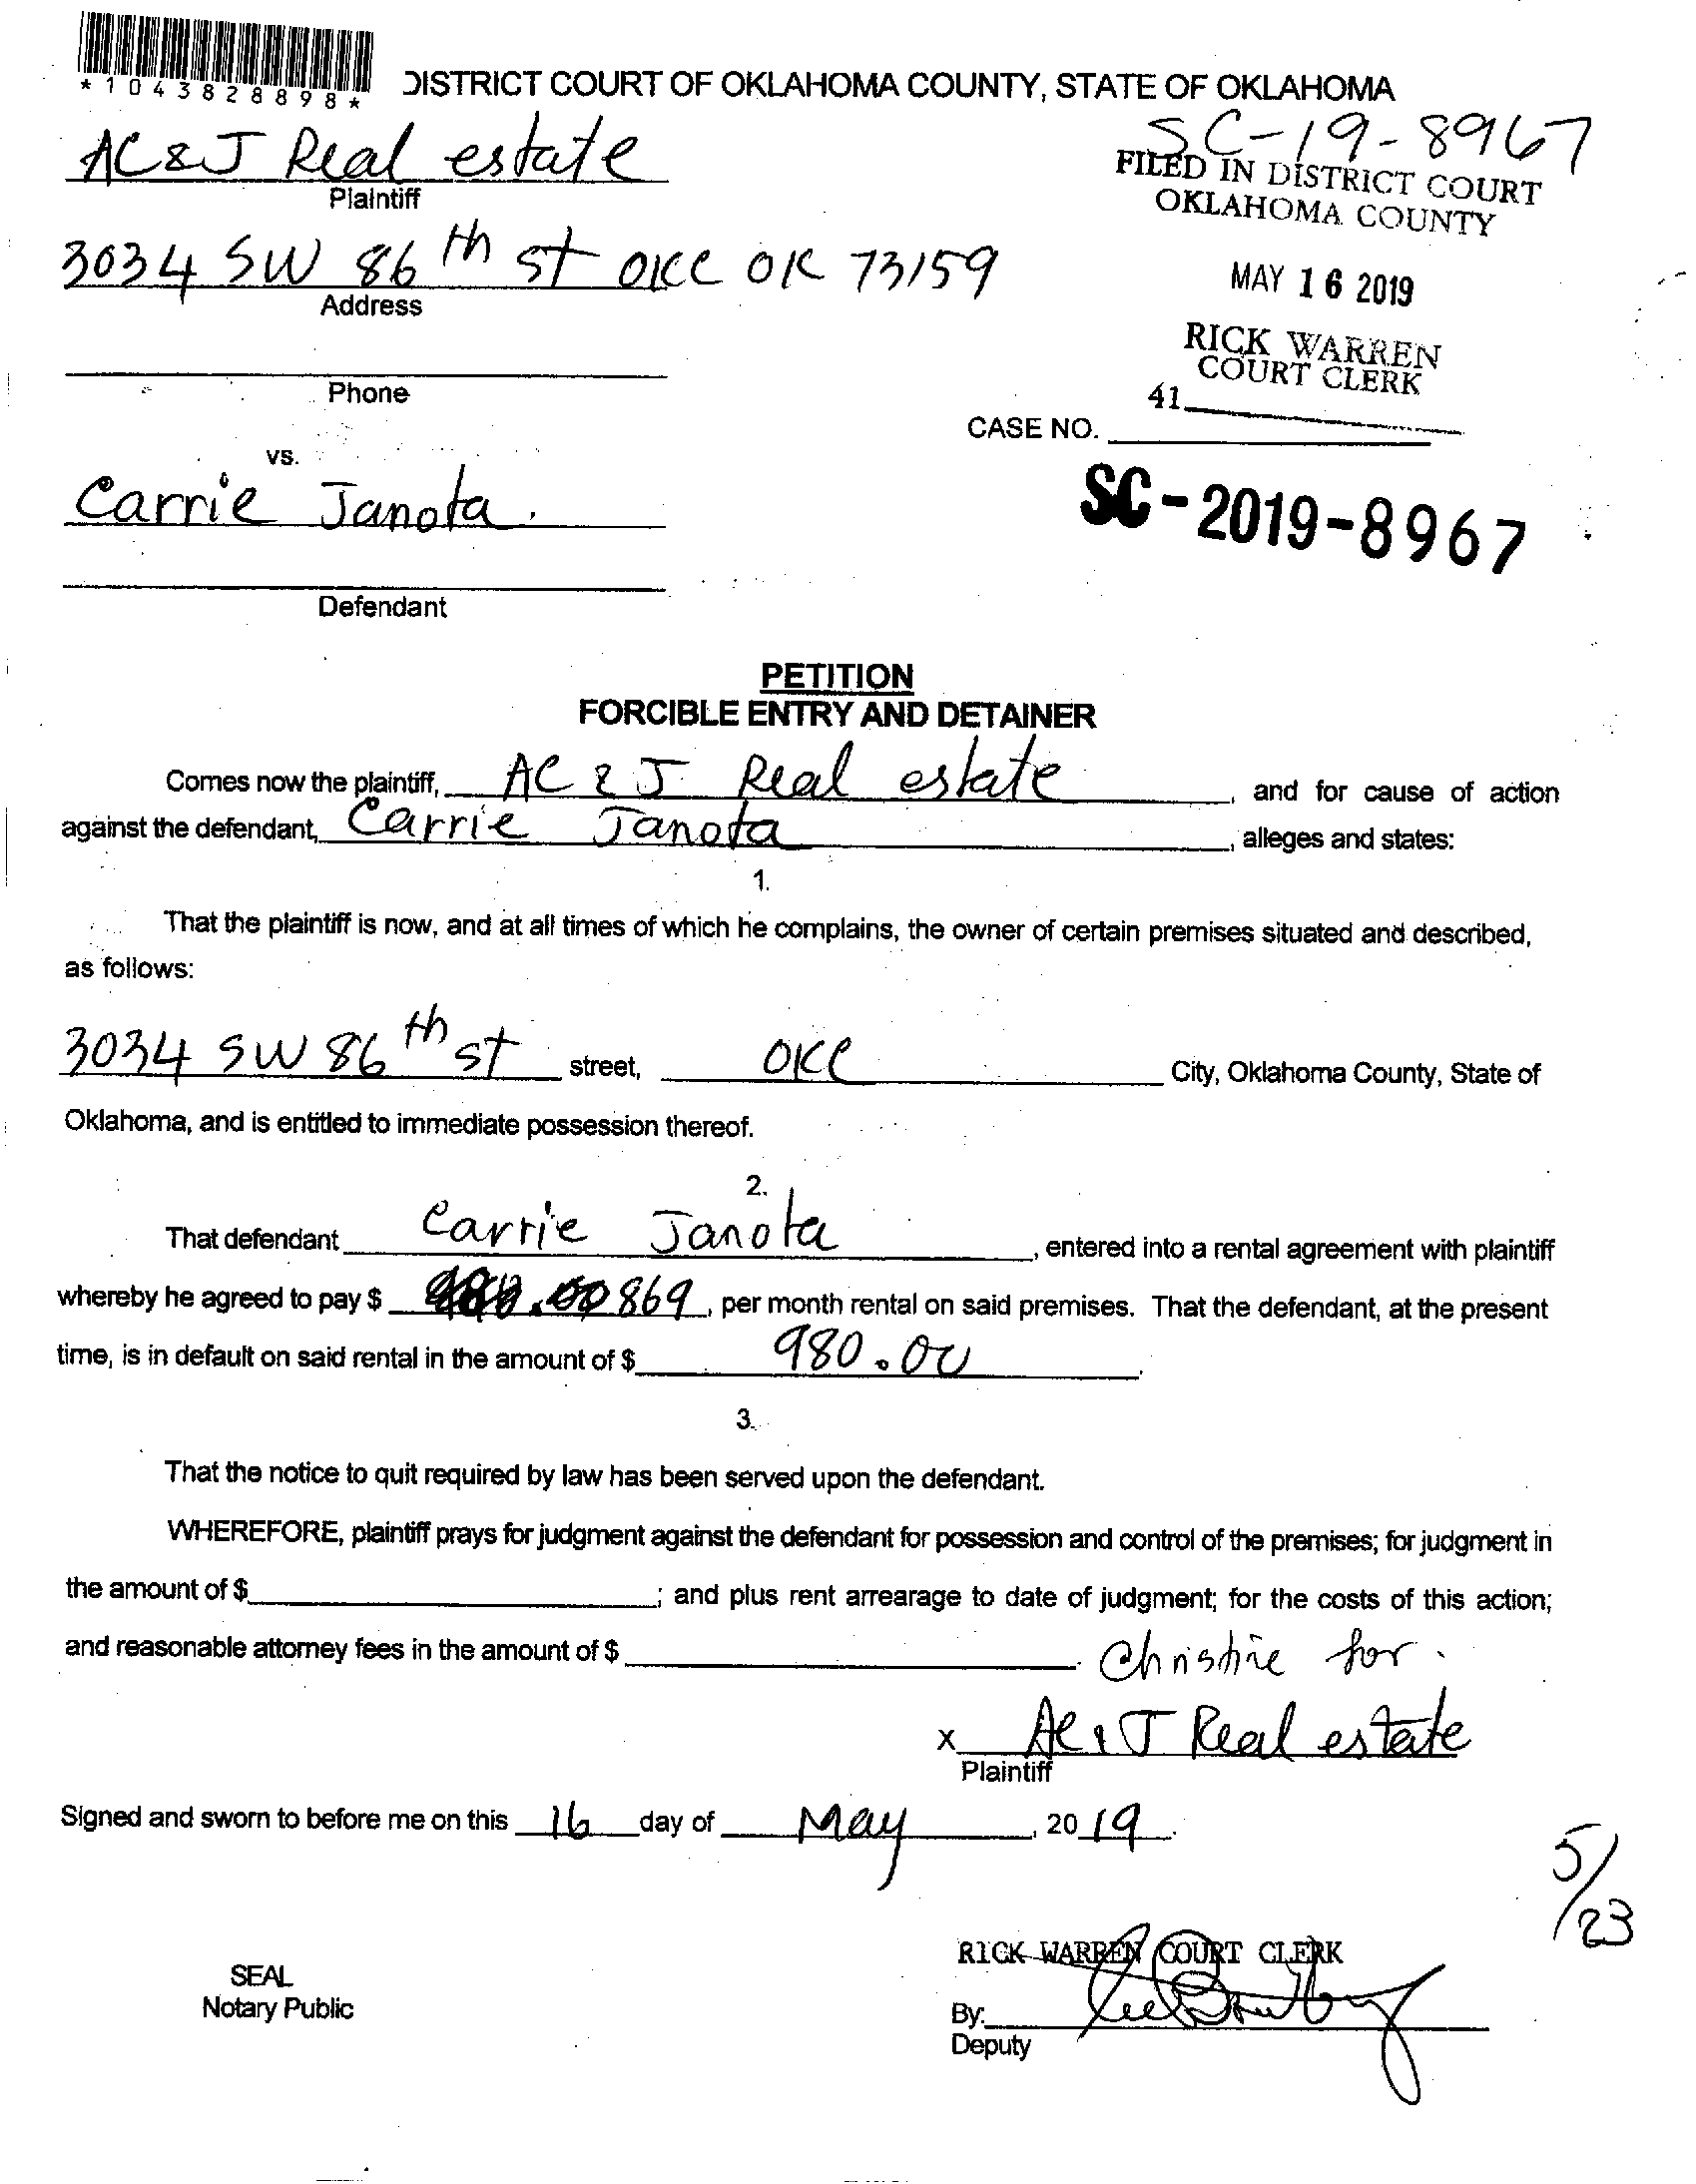 *1043828898*
DISTRICT COURT OF OKLAHOMA COUNTY, STATE OF OKLAHOMA
SC-19-8967
AC&J Real estate
Plaintiff
FILED IN DISTRICT COURT
OKLAHOMA COUNTY
3034 SW 86th st OKC OK 73159
Address
MAY 16 2019
RICK WARREN
COURT CLERK
Phone
41
CASE NO.
vs.
Carrie Janota.
SC-2019-8967
Defendant
PETITION
FORCIBLE ENTRY AND DETAINER
Comes now the plaintiff, AC & J Real estate, and for cause of action
against the defendant, Carrie Janota, alleges and states:
1.
That the plaintiff is now, and at all times of which he complains, the owner of certain premises situated and described,
as follows:
3034 SW 86th st street, OKC City, Oklahoma County, State of
Oklahoma, and is entitled to immediate possession thereof.
2.
That defendant Carrie Janota, entered into a rental agreement with plaintiff
whereby he agreed to pay $ 869, per month rental on said premises. That the defendant, at the present
time, is in default on said rental in the amount of $ 980.00.
3.
That the notice to quit required by law has been served upon the defendant.
WHEREFORE, plaintiff prays for judgment against the defendant for possession and control of the premises; for judgment in
the amount of $ ; and plus rent arrearage to date of judgment; for the costs of this action;
and reasonable attorney fees in the amount of $ .
Christine for.
X AC & J Real estate
Plaintiff
Signed and sworn to before me on this 16 day of May, 2019.
5/23
RICK WARREN COURT CLERK
SEAL
Notary Public
By:
Deputy